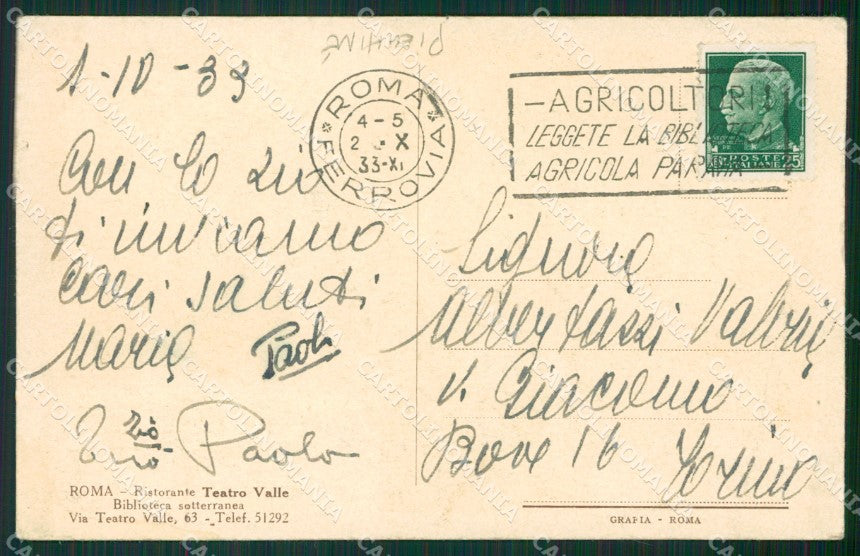 PIEMINE
1-10-33
Con lo zio
ti inviamo
cari saluti
Maria Paolo
Zio
Zio Paolo
ROMA – Ristorante Teatro Valle
Biblioteca sotterranea
Via Teatro Valle, 63 - Telef. 51292
ROMA
4-5
2 X
33-XI
FERROVIA
–AGRICOLTORI!
LEGGETE LA BIBLIOTECA
AGRICOLA PARAVIA
POSTE
ITALIANE 25
Signora
Albertazzi Valeria
v. Giacomo
Bove 16 Torino
GRAFIA - ROMA
CARTOLINOMANIA